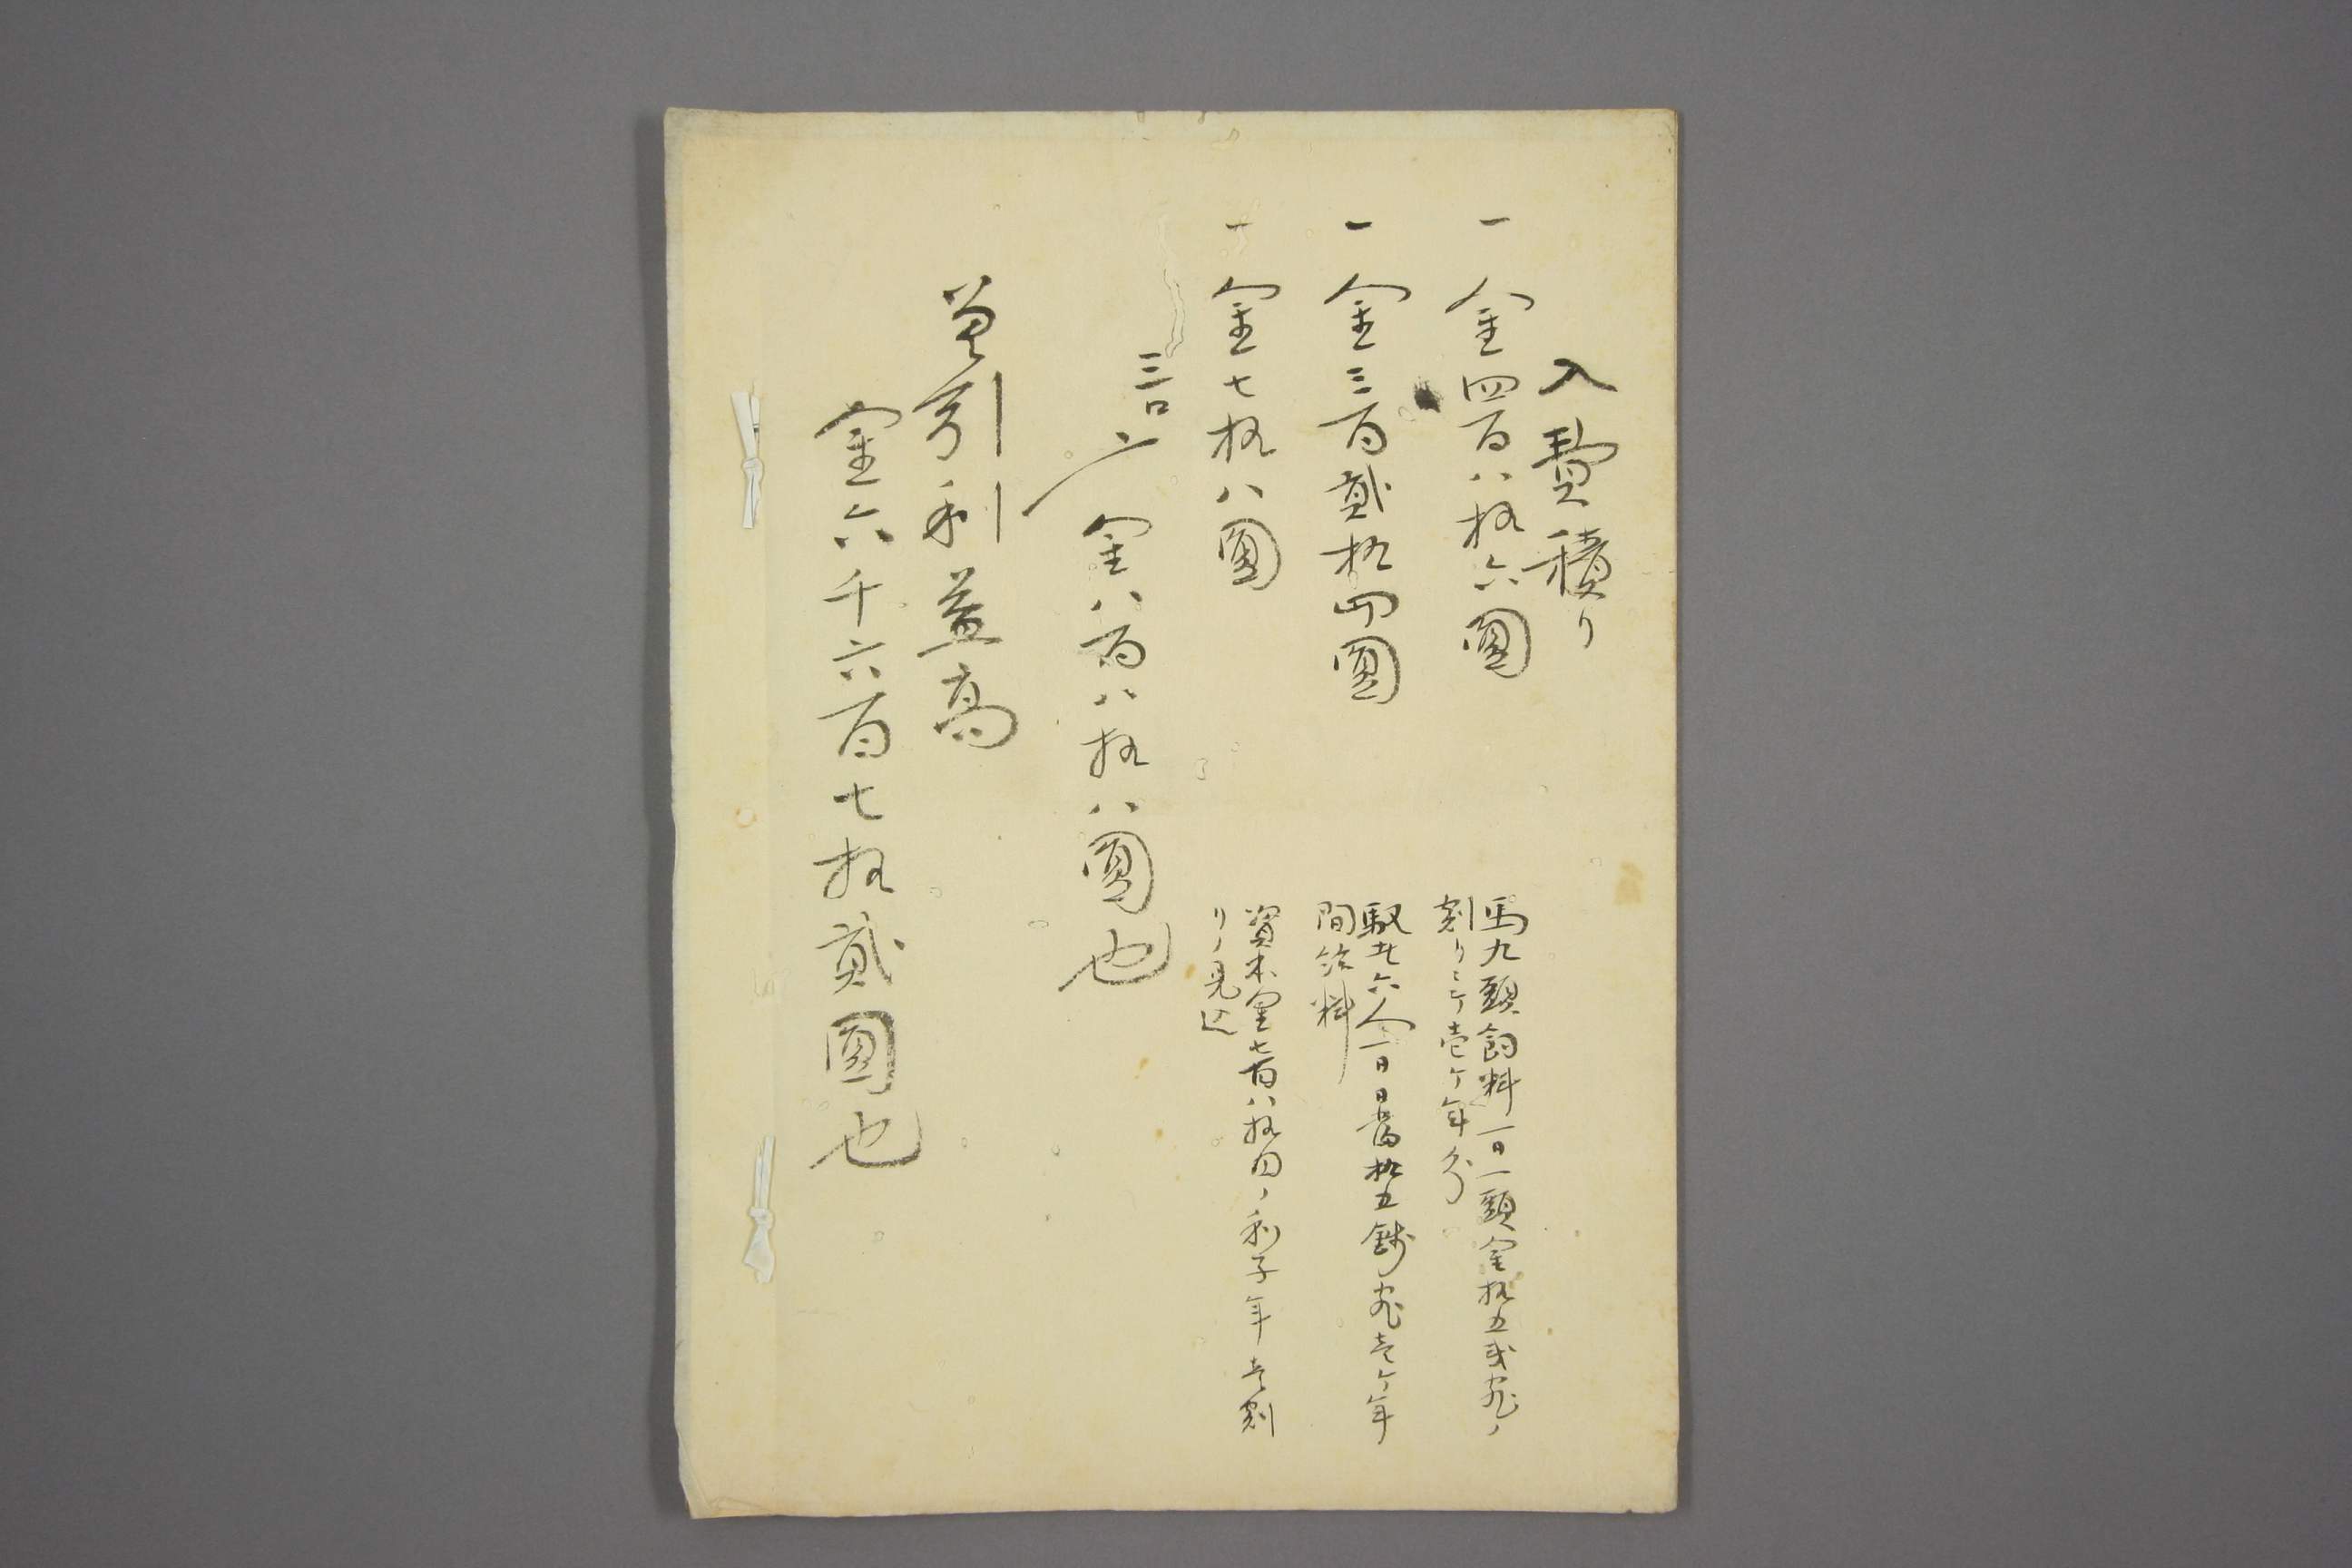 入費積り
一 金四百八拾六圓
馬九頭飼料一日一頭金拾五戋宛ノ
割りニテ壱ケ年分
一 金三百貳拾四圓
馭者六人一日日當拾五錢宛壱ケ年
間給料
一 金七拾八圓
資本金七百八拾円ノ利子年壱割
リノ見込
三口〆
金八百八拾八圓也
差引利益高
金六千六百七拾貳圓也